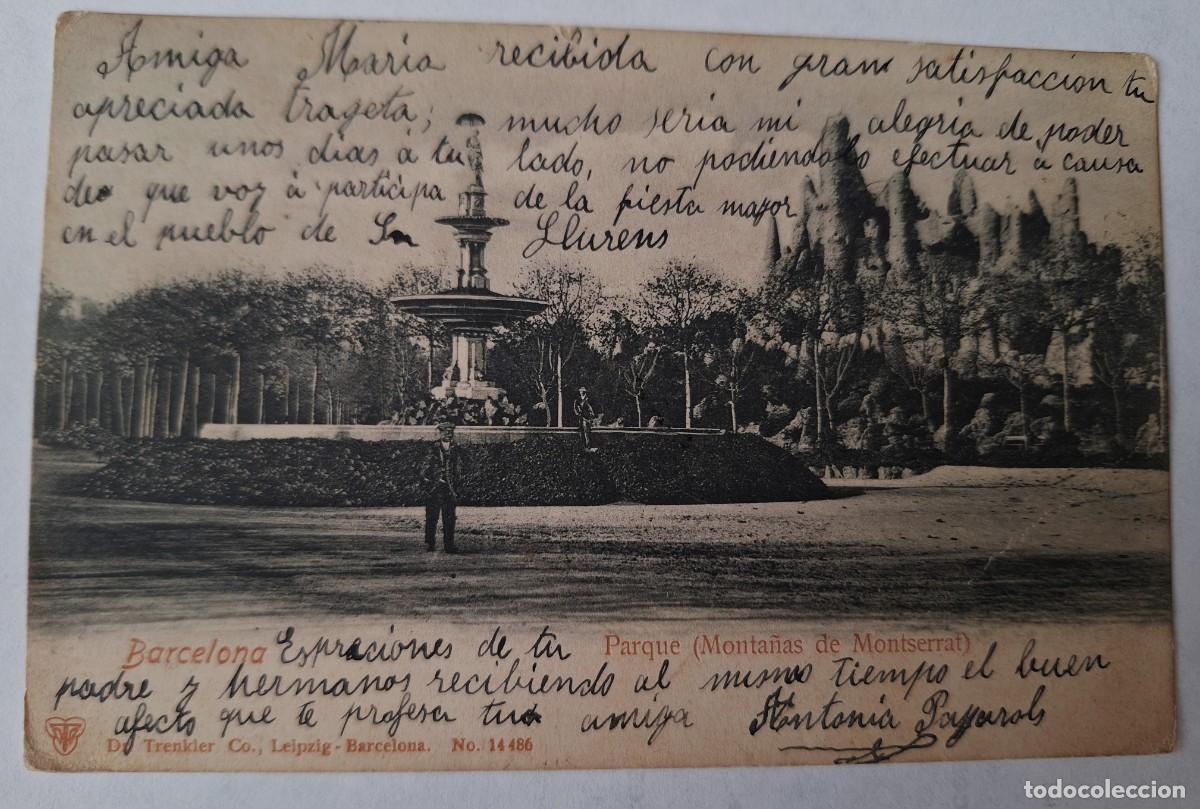 Amiga Maria recibida con gran satisfaccion tu
apreciada trageta; mucho seria mi alegria de poder
pasar unos dias á tu lado, no podiendolo efectuar á causa
de que voy á participa de la fiesta mayor
en el pueblo de Sn Llurens
Barcelona
Parque (Montañas de Montserrat)
Espreciones de tu
padre y hermanos recibiendo al mismo tiempo el buen
afecto que te profesa tu amiga Antonia
Dr Trenkler Co., Leipzig - Barcelona. No. 14486
todocoleccion